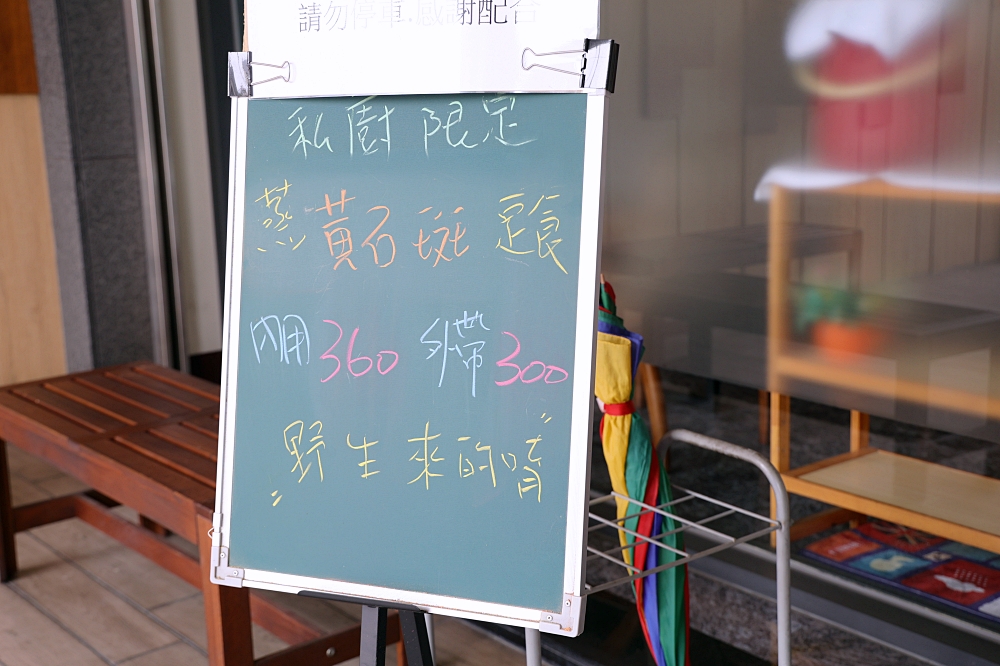 請勿停車.感謝配合
私廚限定
蒸黃石斑定食
內用360 外帶300
"野生來的唷"